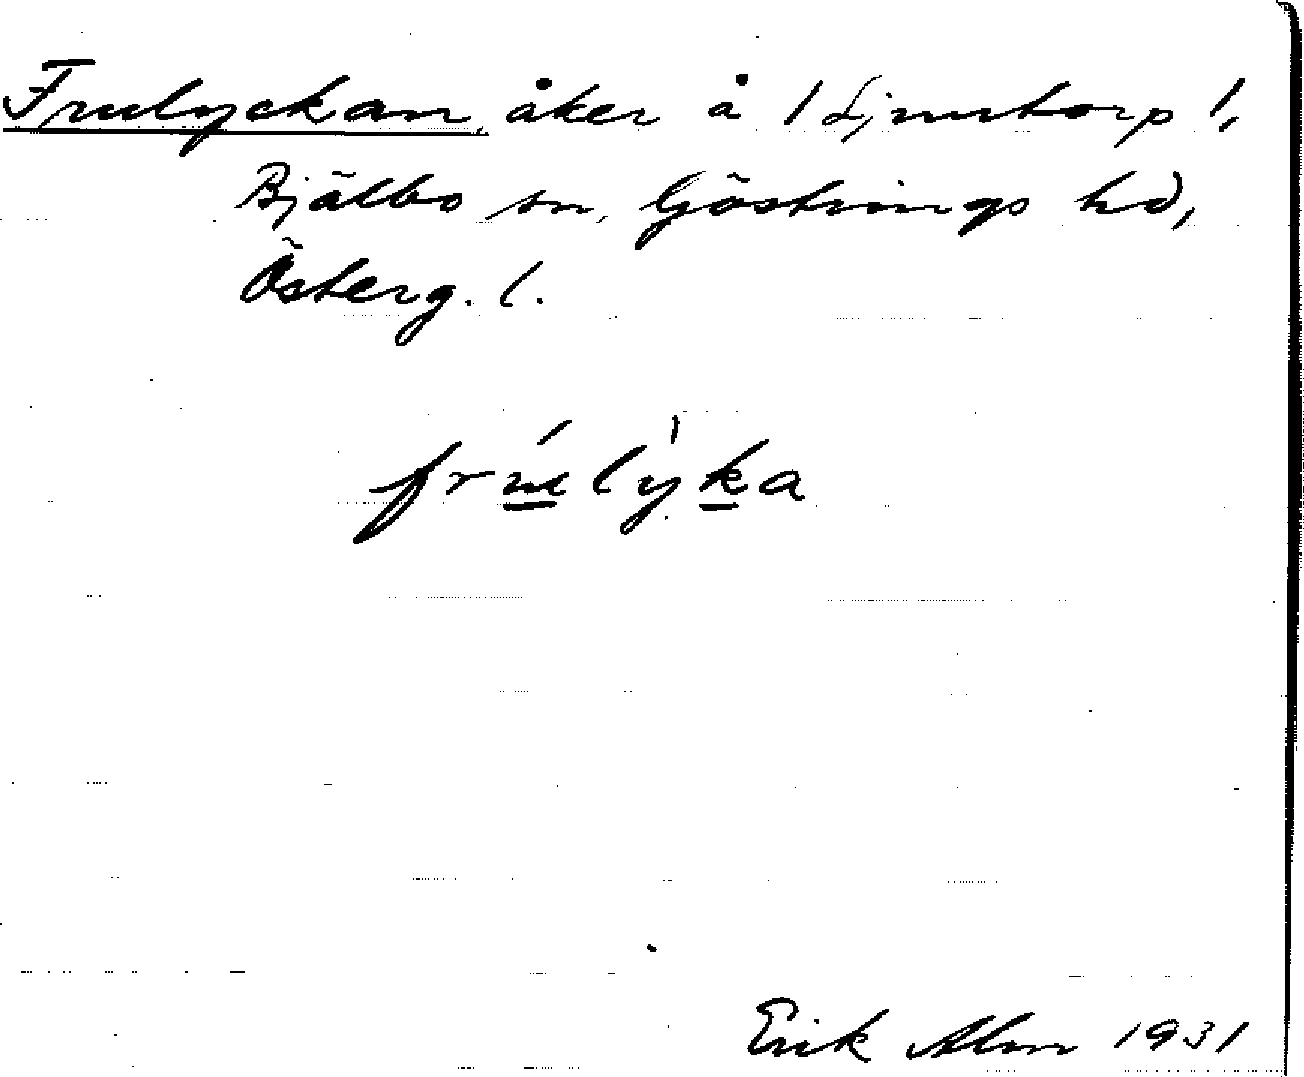 Frulyckan, åker å / Ljunstorp /,
Bjälbo sn, Göstrings hd,
Österg. l.
frúlỳka
Erik Alm 1931